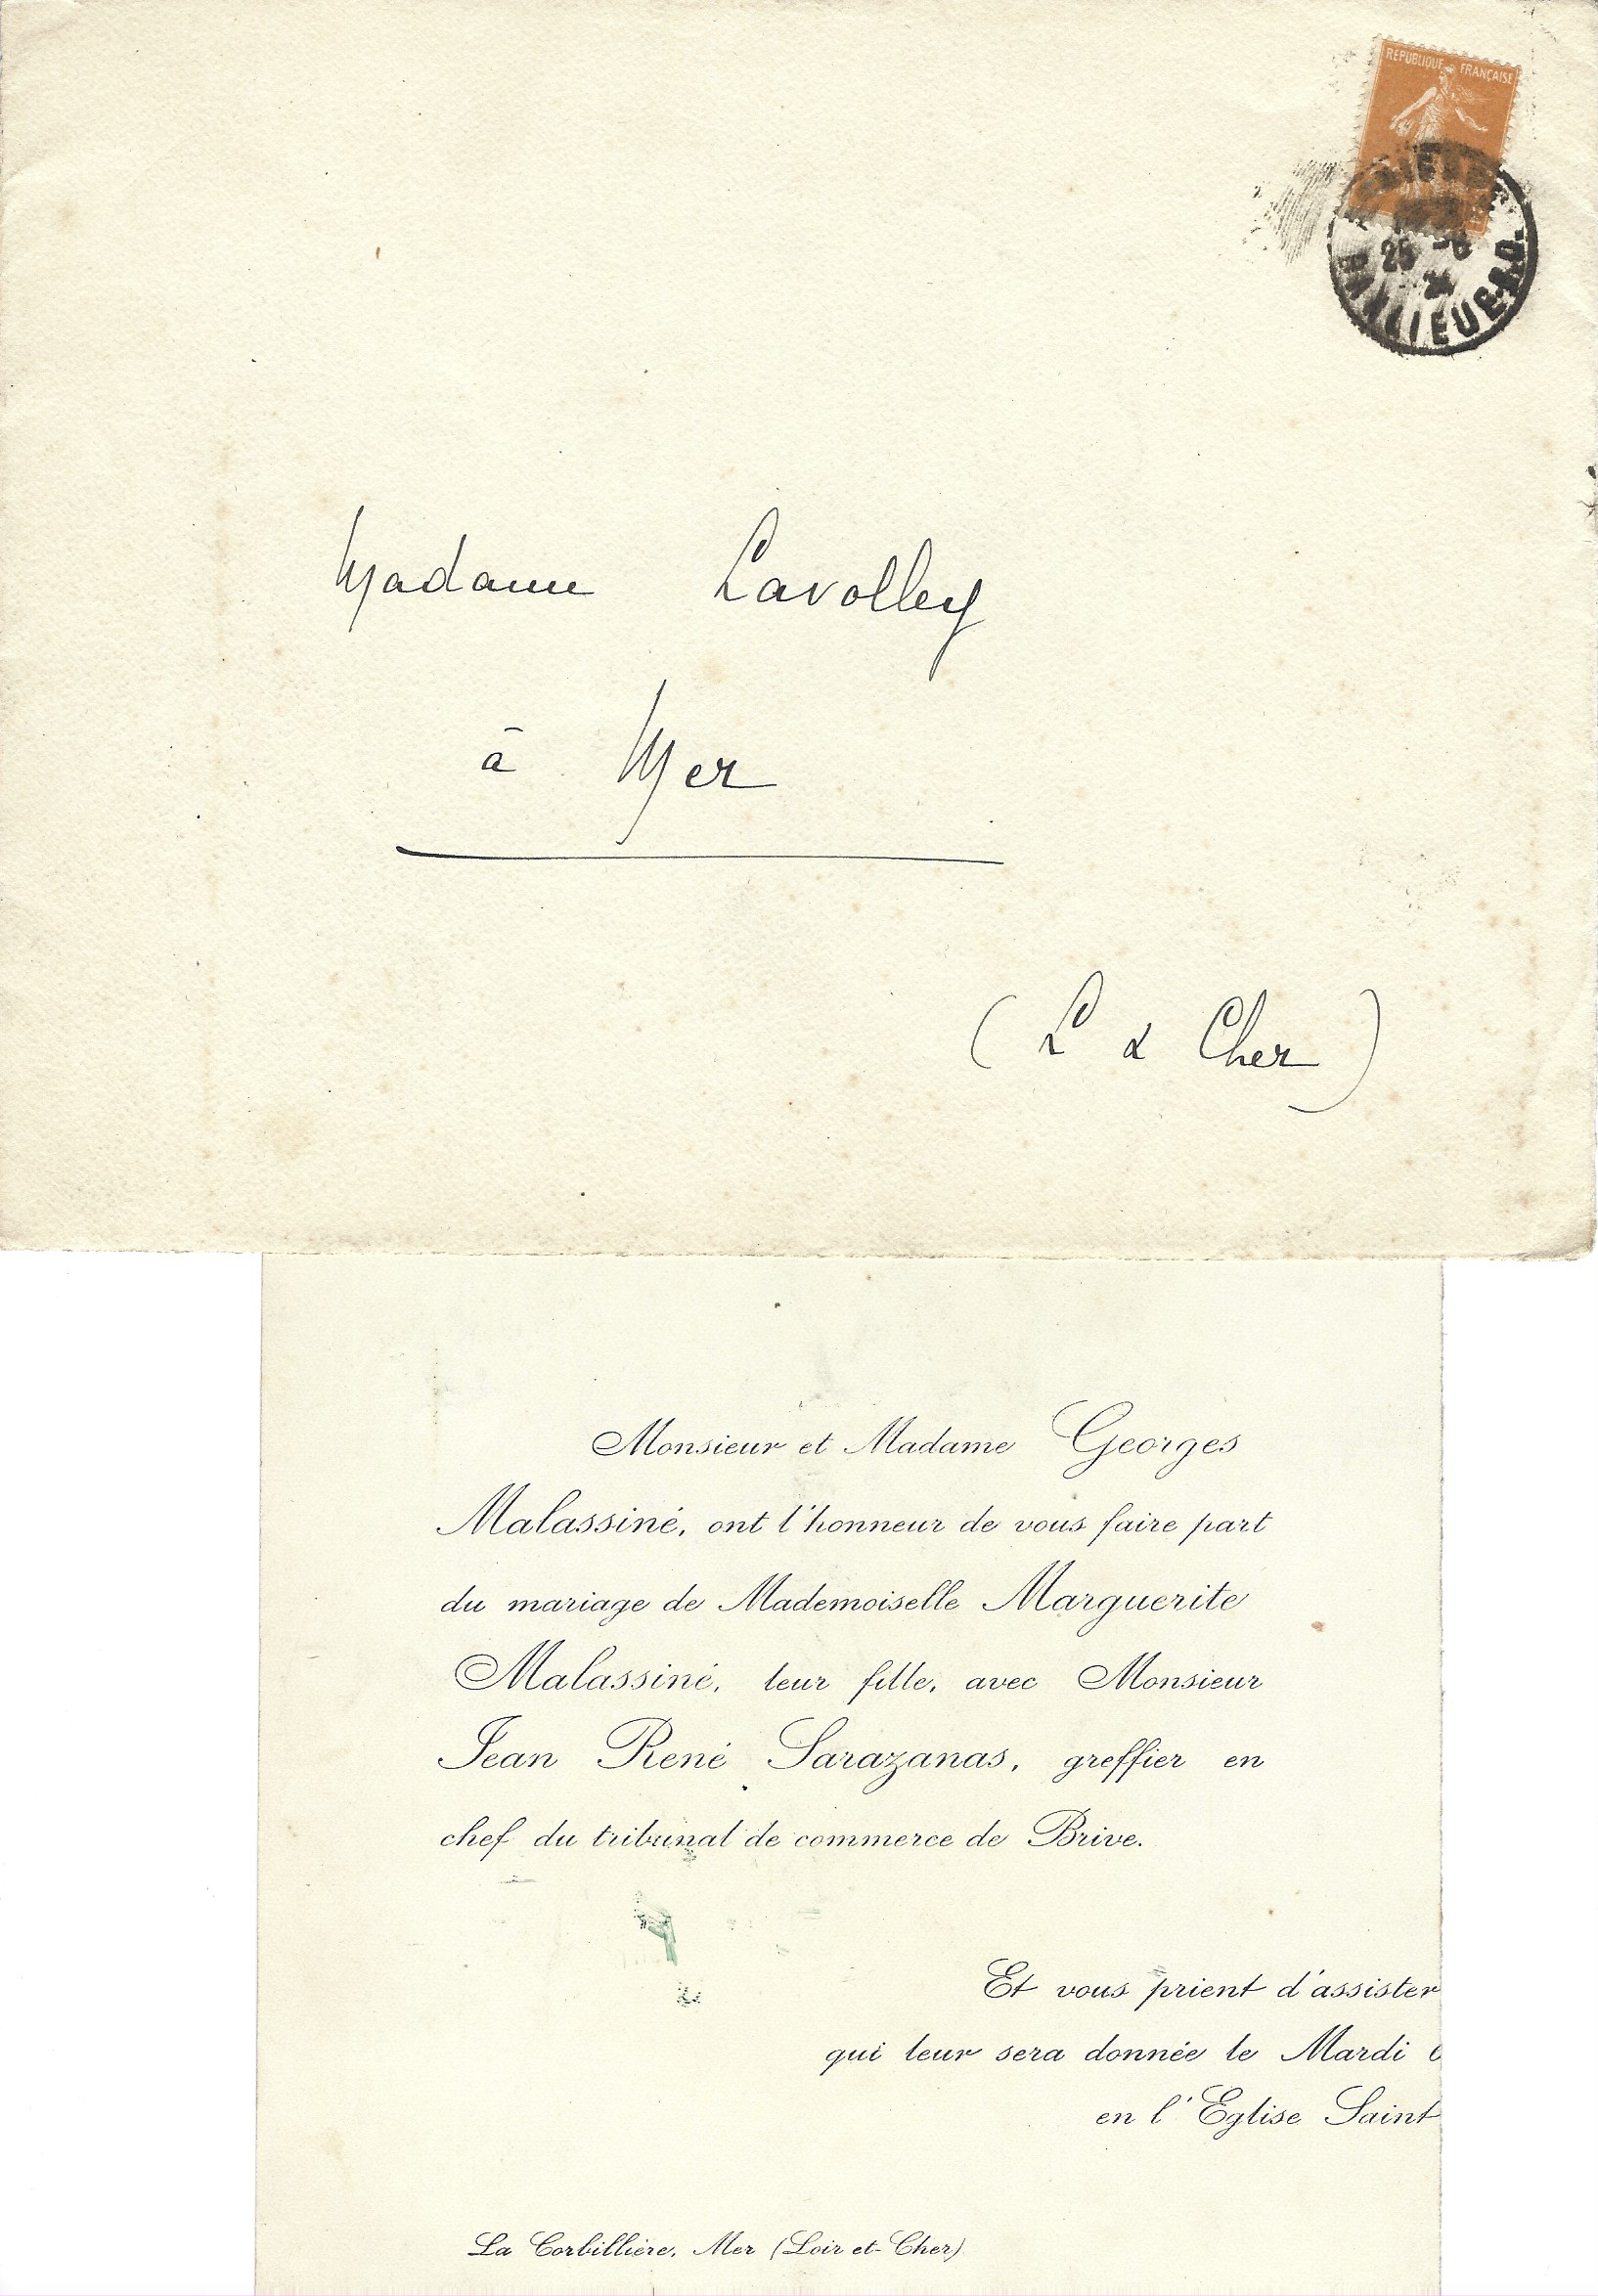 REPUBLIQUE FRANÇAISE
25
BANLIEUE
Madame Lavolley
à Mer
(L & Cher)
Monsieur et Madame Georges
Malassiné, ont l'honneur de vous faire part
du mariage de Mademoiselle Marguerite
Malassiné, leur fille, avec Monsieur
Jean René Sarazanas, greffier en
chef du tribunal de commerce de Brive.
Et vous prient d'assister
qui leur sera donnée le Mardi
en l'Eglise Saint
La Corbillière, Mer (Loir et-Cher)